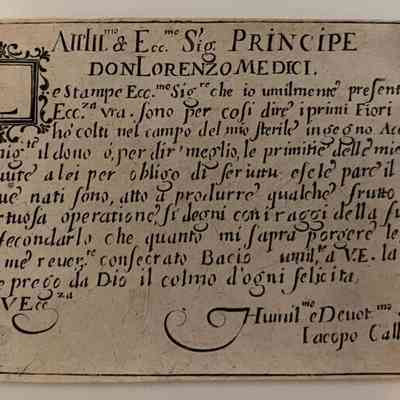 All'Ill.mo & Ecc.mo Sig. PRINCIPE
DON LORENZO MEDICI.
L
e Stampe Ecc.mo Sig.re che io umilmente present
Ecc.za vra. sono per cosi dire i primi Fiori
hò colti nel campo del mio sterile ingegno Ac
il dono ó, per dir' meglio, le primitie delle mie
ute a lei per obligo di seruitu e se le pare il
ue nati sono, atto a produrre qualche frutto
rtuosa operatione, si degni con i raggi della su
fecondarlo che quanto mi sapra porgere le
me reuer.te consecrato Bacio umil.te a V.E. la
e prego da Dio il colmo d'ogni felicita,
V Ecc.za
Humil.mo e Deuot.mo
Iacopo Call